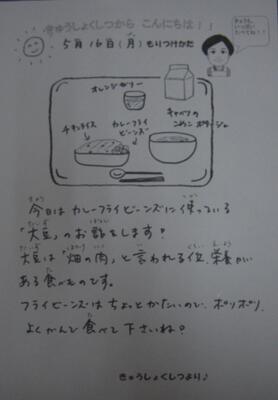 きゅうしょくしつから こんにちは！！
5月16日(月)もりつけかた
オレンジゼリー
キャベツの
こめこ ポタージュ
チキンライス
カレーフライ
ビーンズ
今日は カレーフライビーンズに 使っている
「大豆」の お話をします！
大豆は「畑の肉」と言われる位、栄養が
ある食べものです。
フライビーンズは ちょっとかたいので、ポリポリ
よくかんで 食べて下さいね！
きゅうしょくしつより♪